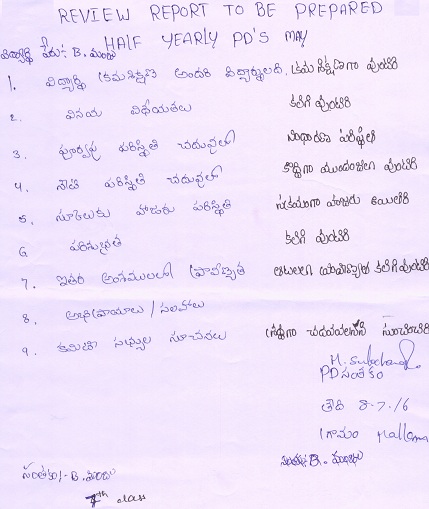 REVIEW REPORT TO BE PREPARED
HALF YEARLY PD'S MAY
విద్యార్థి పేరు:- B. మంజు
1. విద్యార్థి క్రమశిక్షణ అందరి విద్యార్థులది, క్రమ శిక్షణగా వుంటిరి
2. వినయ విధేయతలు కలిగి వుంటిరి
3. పూర్వపు పరిస్థితి చదువులో సాధారణ పరిస్థితి
4. నేటి పరిస్థితి చదువులో కొద్దిగా ముందంజలో వుంటిరి
5. స్కూలుకు హాజరు పరిస్థితి సక్రమంగా హాజరు అయిరి
6 పరిశుభ్రత కలిగి వుంటిరి
7. ఇతర అంశములలో ప్రావీణ్యత ఆటలలో ప్రావీణ్యత కలిగి వుంటిరి
8. అభిప్రాయాలు / సలహాలు
9. కమిటీ సభ్యుల సూచనలు శ్రద్ధగా చదవవలసినది సూచించిరి
PD సంతకం
తేది 8-7-/16
గ్రామం
సంతకం B. మంజు
సంతకం/- B. మంజు
7th class